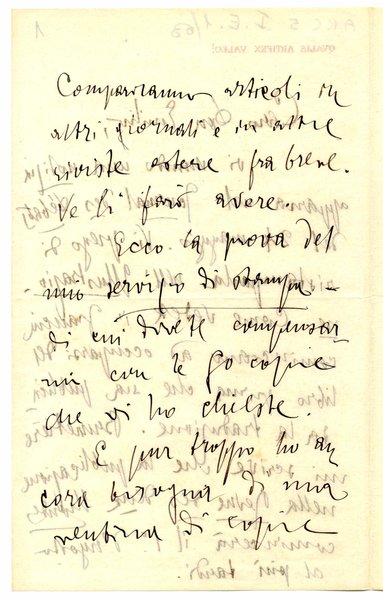 Compariranno articoli in
altri giornali e in altre
riviste estere fra breve.
Ve li farò avere.
Ecco la prova del
mio servizio di stampa -
di cui dovete compensar-
mi con le 90 copie
che vi ho chieste.
E pur troppo ho an
cora bisogno di una
ventina di copie